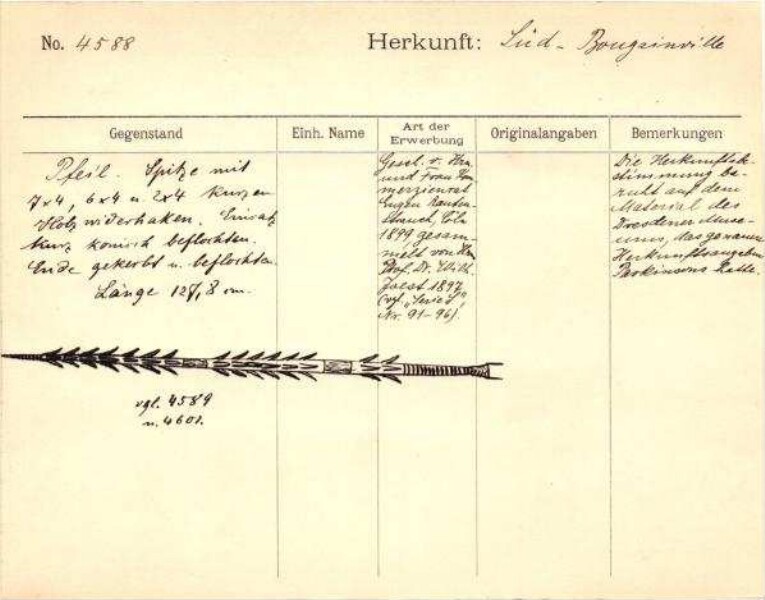 No. 4588
Herkunft: Süd-Bougainville
Gegenstand
Einh. Name
Art der
Erwerbung
Originalangaben
Bemerkungen
Pfeil. Spitze mit
7x4, 6x4 u. 2x4 kurzen
Holzwiderhaken. Einsatz
kurz konisch beflochten.
Ende gekerbt u. beflochten.
Länge 127,8 cm.
Gesch. v. Hrn.
und Frau Kom-
merzienrat
Eugen Rauten-
strauch, Cöln
1899 gesam-
melt von Hrn
Prof. Dr. Wilh.
Joest 1897
(vgl. „Serie I“,
Nr. 91-96).
Die Herkunftsbe-
stimmung be-
ruht auf dem
Material des
Dresdener Muse-
ums, das genauere
Herkunftsangaben
Parkinsons hatte.
vgl. 4589
u. 4601.